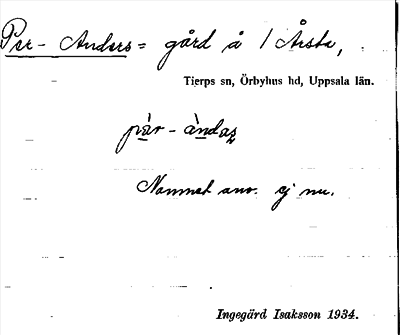 Per-Anders= gård å 1 Årsta,
Tierps sn, Örbyhus hd, Uppsala län.
pàr-àndas
Namnet anv. ej nu.
Ingegärd Isaksson 1934.